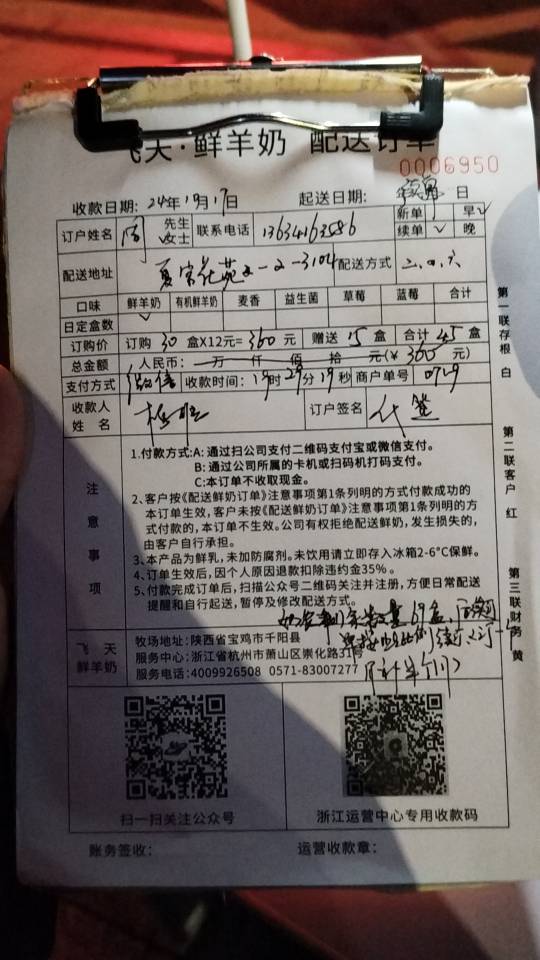 飞天·鲜羊奶 配送订单
0006950
收款日期: 24年 月17日 起送日期: 日
订户姓名 先生 女士 联系电话 13634163586 新单 早√
续单√ 晚
配送地址 2-2-3104 配送方式 二、四、六
口味 鲜羊奶 有机鲜羊奶 麦香 益生菌 草莓 蓝莓 合计
日定盒数 √
订购价 订购 30 盒X12元= 360 元 赠送 15 盒 合计 45 盒
总金额 人民币: 万 仟 佰 拾 元(¥ 360 元)
支付方式 微信 收款时间: 19时29分19秒 商户单号 0729
收款人姓名 订户签名 代签
注意事项
1.付款方式:A: 通过扫公司支付二维码支付宝或微信支付。
B: 通过公司所属的卡机或扫码机打码支付。
C:本订单不收取现金。
2、客户按《配送鲜奶订单》注意事项第1条列明的方式付款成功的
本订单生效, 客户未按《配送鲜奶订单》注意事项第1条列明的方
式付款的, 本订单不生效。公司有权拒绝配送鲜奶, 发生损失的,
由客户自行承担。
3、本产品为鲜乳, 未加防腐剂。未饮用请立即存入冰箱2-6°C保鲜。
4、订单生效后, 因个人原因退款扣除违约金35%。
5、付款完成订单后, 扫描公众号二维码关注并注册, 方便日常配送
提醒和自行起送, 暂停及修改配送方式。
飞天鲜羊奶
牧场地址: 陕西省宝鸡市千阳县
服务中心: 浙江省杭州市萧山区崇化路31号
服务电话: 4009926508 0571-83007277
扫一扫关注公众号 浙江运营中心专用收款码
账务签收: 运营收款章:
第一联存根 白
第二联客户 红
第三联财务 黄